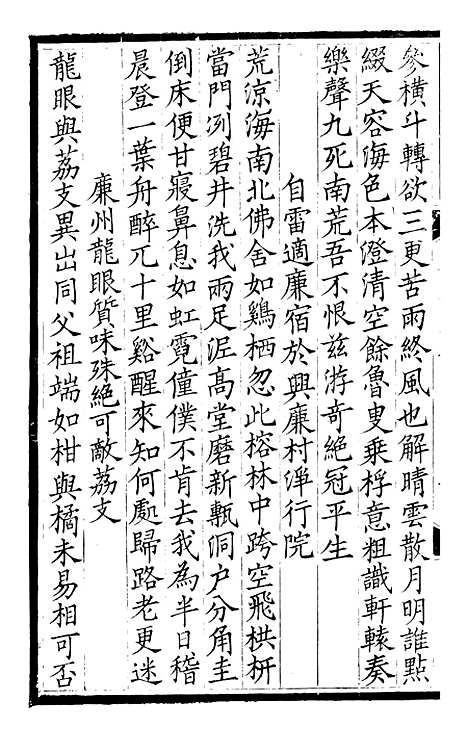 參橫斗轉欲三更苦雨終風也解晴雲散月明誰點
綴天容海色本澄清空餘魯叟乗桴意粗識軒轅奏
樂聲九死南荒吾不恨兹游竒絶冠平生
自雷適廉宿於興廉村淨行院
荒凉海南北佛舍如鷄栖忽此榕林中跨空飛栱枅
當門冽碧井洗我兩足泥高堂磨新甎洞户分角圭
倒床便甘寢鼻息如虹霓僮僕不肯去我為半日稽
晨登一葉舟醉兀十里谿醒來知何處歸路老更迷
廉州龍眼質味殊絶可敵荔支
龍眼與荔支異出同父祖端如柑與橘未易相可否